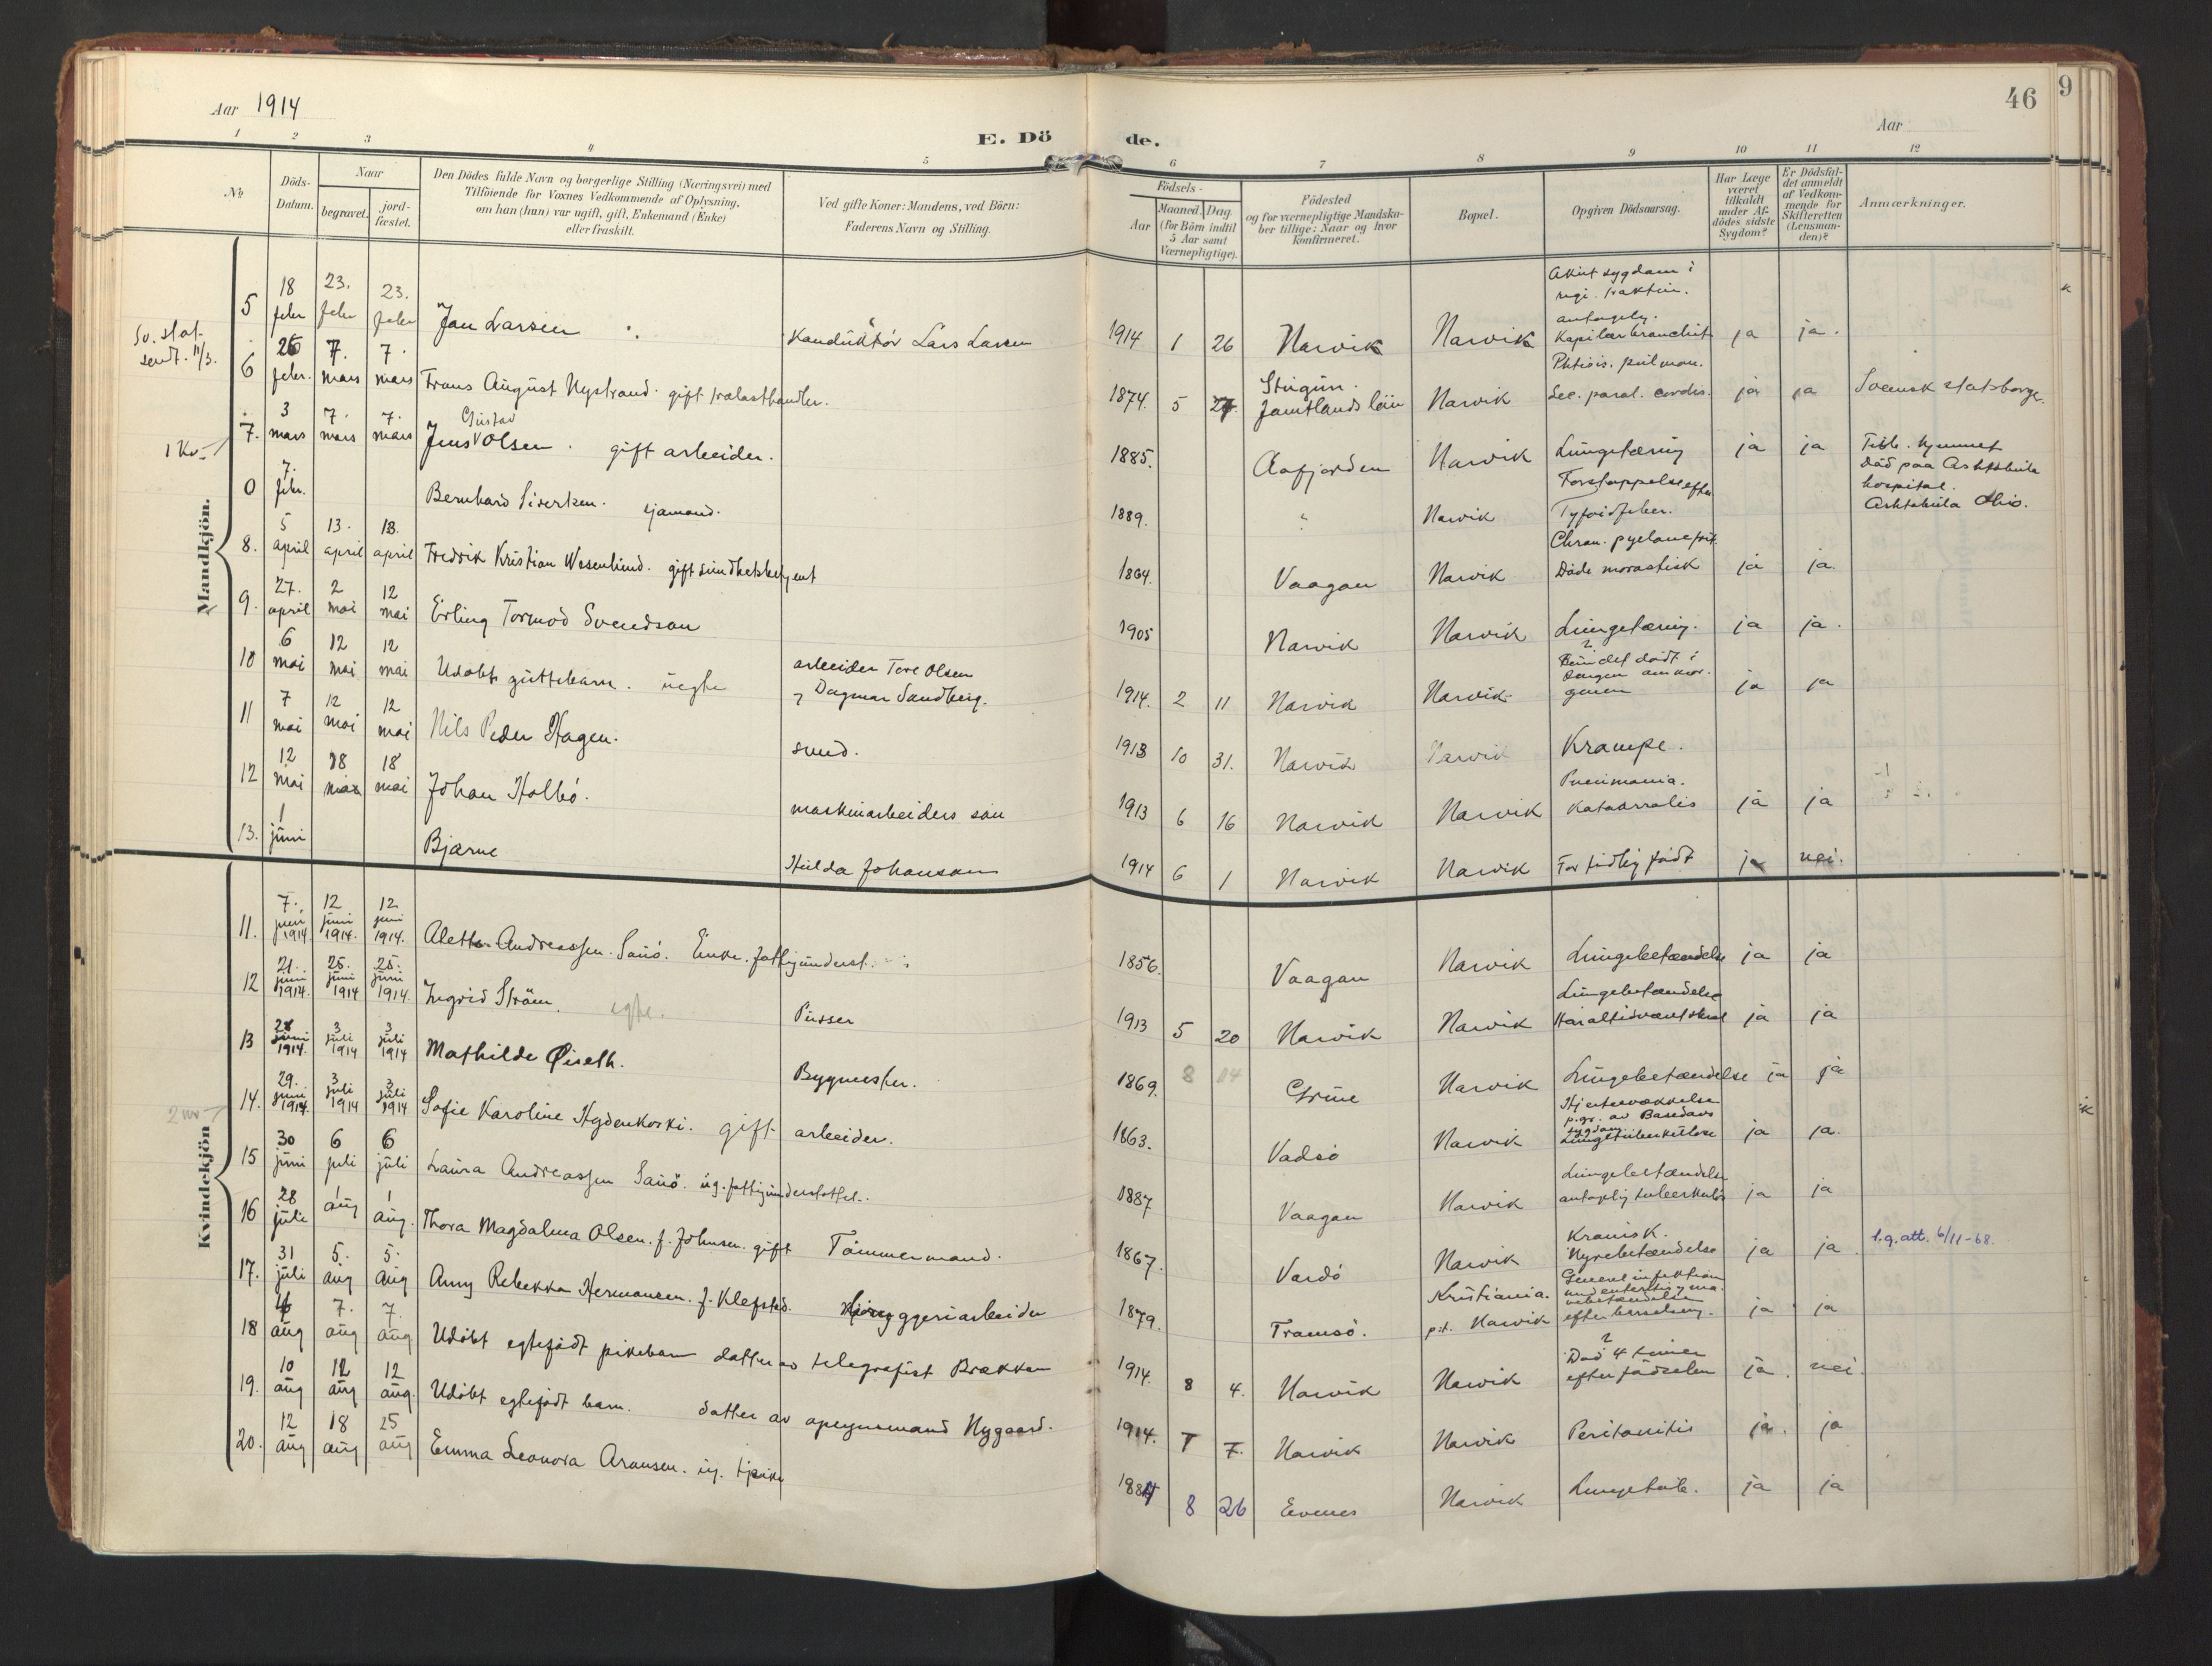 Aar 1914
E. Dö de.
46
9
Aar
1 2 3 4 5 6 7 8 9 10 11 12
No
Döds-Datum.
Naar
begravet.
jord-fæstet.
Den Dödes fulde Navn og borgerlige Stilling (Næringsvei) med
Tilföiende for Voxnes Vedkommende af Oplysning,
om han (hun) var ugift, gift, Enkemand (Enke)
eller fraskilt.
Ved gifte Koner: Mandens, ved Börn:
Faderens Navn og Stilling.
Födsels-
Aar
Maaned.
Dag.
(for Börn indtil
5 Aar samt
Værnepligtige).
Födested
og for værnepligtige Mandska-
ber tillige: Naar og hvor
konfirmeret.
Bopæl.
Opgiven Dödsaarsag.
Har Læge
været
tilkaldt
under Af-
dödes sidste
Sygdom?
Er Dödsfal-
det anmeldt
af Vedkom-
mende for
Skifteretten
(Lensman-
den)?
Anmærkninger.
Mandkjön.
5 18 febr 23. febr 23. febr Jan Larsen Konduktör Lars Larsen 1914 1 26 Narvik Narvik Akut sygdom i antagelig. Kapilær bronchit ja ja.
Sv. stat. sendt. 11/3.
6 26 febr. 7. mars 7. mars Frans August Nystrand. gift trælasthandler. 1874. 5 27. Stugun. Jämtlands län Narvik Phtisis. pulmon. Sec. paral. cordis. ja ja Svensk statsborger
1 Kv.
7. 3 mars 7. mars 7. mars Jens Gustav Olsen. gift arbeider. 1885. Aafjorden Narvik Lungetæring ja ja
0 7. febr. Bernhard Sivertsen. sjømand. 1889. " Narvik Forstoppelse efter Tyfoidfeber. död paa Ashtabula hospital. Ashtabula Ohio.
8. 5 april 13. april 13. april Fredrik Kristian Wesenlund. gift sundhetsbetjent 1864. Vaagan Narvik Chron. pyelonefrit. Döde morastisk ja ja.
9. 27. april 2 mai 12 mai Erling Tormod Svendson 1905 Narvik Narvik Lungetæring. ja ja.
10 6 mai 12 mai 12 mai Udöbt guttebarn. uegte arbeider Tore Olsen og Dagmar Sandberg. 1914. 2 11 Narvik Narvik Fundet dödt i sengen om morgenen ja ja
11 7 mai 12 mai 12 mai Nils Peder Hagen. smed. 1913 10 31. Narvik Narvik Krampe.
12 12 mai 18 mai 18 mai Johan Holbö. maskinarbeiders sön 1913 6 16 Narvik Narvik Pneumonia. Kataorralis ja ja
13. 1 juni Bjarne Hulda Johansson 1914 6 1 Narvik Narvik For tidlig födt ja nei.
Kvindekjön
11. 7. juni 1914. 12 juni 1914. 12 juni 1914. Aletta Andreassen. Sauö. Enke. fattigunderst. 1856. Vaagan Narvik Lungebetændelse ja ja
12 21. juni 1914. 25. juni 1914 25. juni 1914. Ingrid Ström. egte. Pusser 1913 5 20 Narvik Narvik Lungebetændelse ja ja
13 28 juni 1914. 3 juli 1914 3 juli 1914 Mathilde Øiseth. Bygmester. 1869. 8 14 Grue Narvik Lungebetændelse ja ja
2 nr
14. 29. juni 1914. 3 juli 1914 3 juli 1914 Sofie Karoline Hydenkoski. gift arbeider. 1863. Vadsö Narvik Hjertesvækkelse p.gr. av Basedows sygdom Lungetuberkulose ja ja.
15 30 juni 6 juli 6 juli Laura Andreassen Sauö. ug. fattigunderstöttet. 1887 Vaagan Narvik Lungebetændelse antagelig tuberkulös ja ja
16 28 juli 1 aug 1 aug. Thora Magdalena Olsen. f. Johnsen. gift Tömmermand. 1867. Vardö Narvik Kronisk. Nyrebetændelse ja ja. l.g.att. 6/11-68.
17. 31 juli 5. aug 5. aug Anny Rebekka Hermansen. f. Klefstad. bryggeriarbeider 1879. Tromsö. Kristiania. p.t. Narvik efter barselseng. ja ja
18 4 aug 7. aug 7. aug Udöbt egtefödt pikebarn datter av telegrafist Brækken 1914. 8 4. Narvik Narvik Död 4 timer efter födselen ja. nei.
19. 10 aug 12 aug 12 aug. Udöbt egtefödt barn. datter av opsynsmand Nygaard. 1914. 7 7. Narvik Narvik Peritonitis ja. ja
20. 12 aug 18 aug 25 aug Emma Leonora Aronsen. ug. tj.pike 1884 8 26 Evenes Narvik Lungetub. ja ja